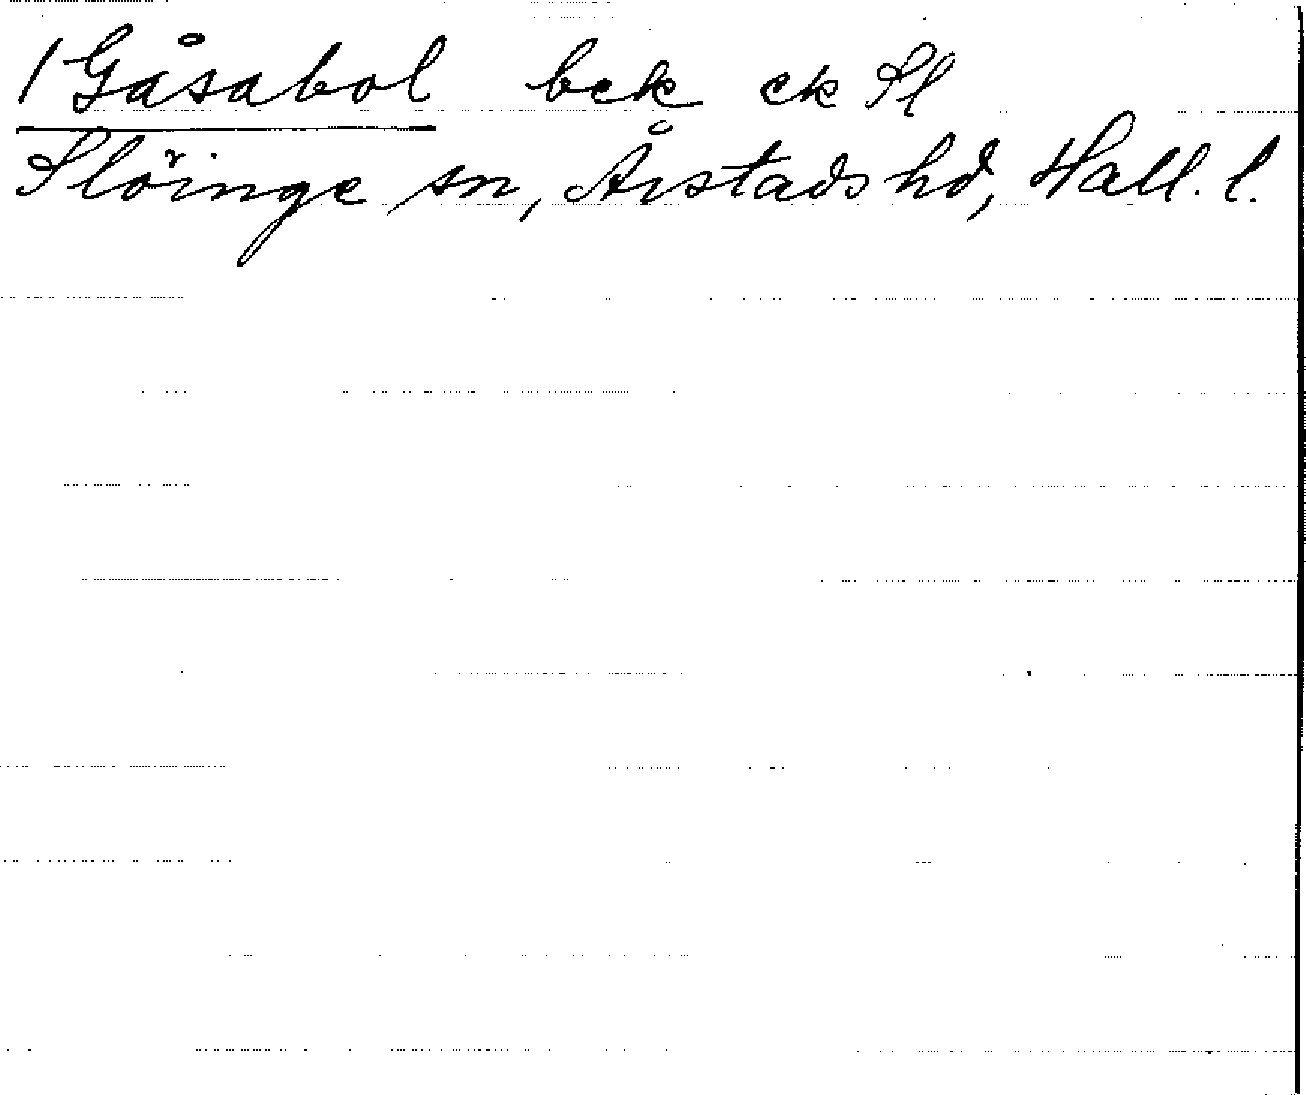 / Gåsabol bek ek Sl
Slöinge sn, Årstads hd, Hall. l.